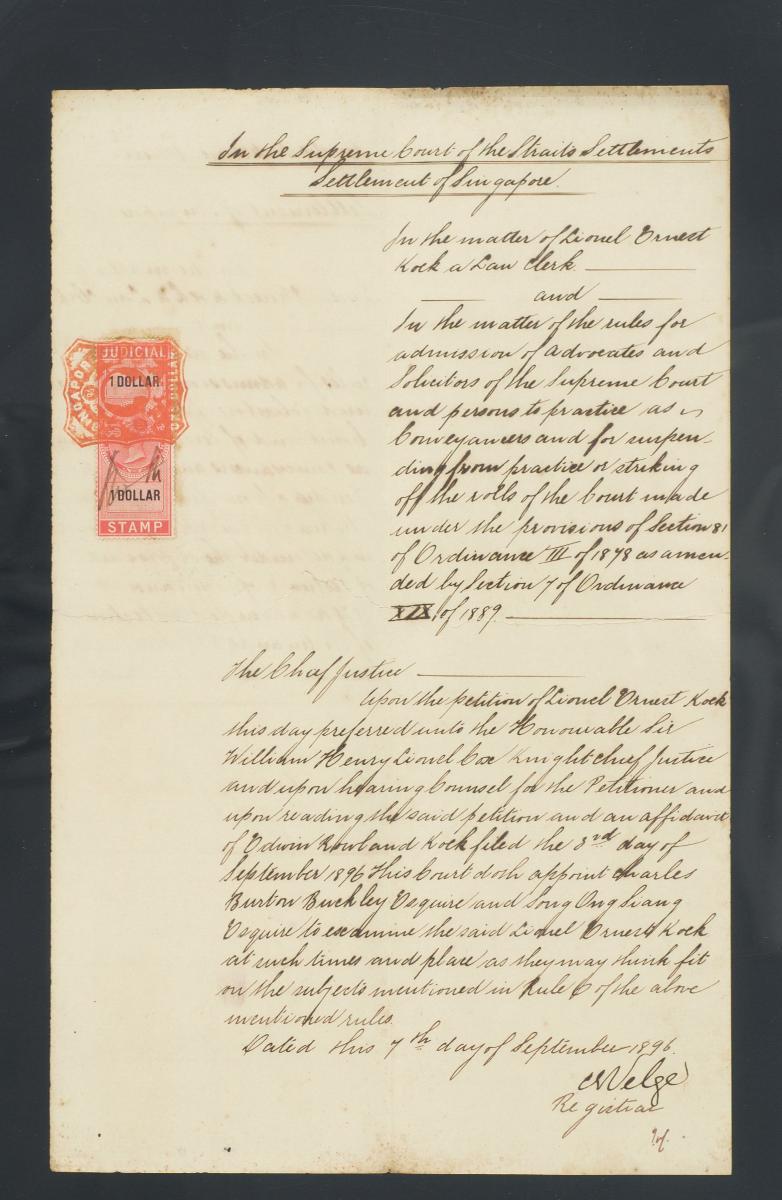 In the Supreme Court of the Straits Settlements
Settlement of Singapore.
In the matter of Lionel Ernest
Kock a Law Clerk
and
In the matter of the rules for
admission of advocates and
Solicitors of the Supreme Court
and persons to practice as
Conveyancers and for suspen-
ding from practice or striking
off the rolls of the Court made
under the provisions of Section 81
of Ordinance III of 1878 as amen-
ded by Section 7 of Ordinance
XIX of 1889.
JUDICIAL
1 DOLLAR
SINGAPORE
ONE DOLLAR
1 DOLLAR
STAMP
The Chief Justice
Upon the petition of Lionel Ernest Kock
this day preferred unto the Honourable Sir
William Henry Lionel Cox Knight Chief Justice
and upon hearing Counsel for the Petitioner and
upon reading the said petition and an affidavit
of Edwin Rowland Kock filed the 3rd day of
September 1896 This Court doth appoint Charles
Burton Buckley Esquire and Song Ong Siang
Esquire to examine the said Lionel Ernest Kock
at such times and place as they may think fit
on the subjects mentioned in Rule 6 of the above
mentioned rules.
Dated this 7th day of September 1896.
Velge
Registrar